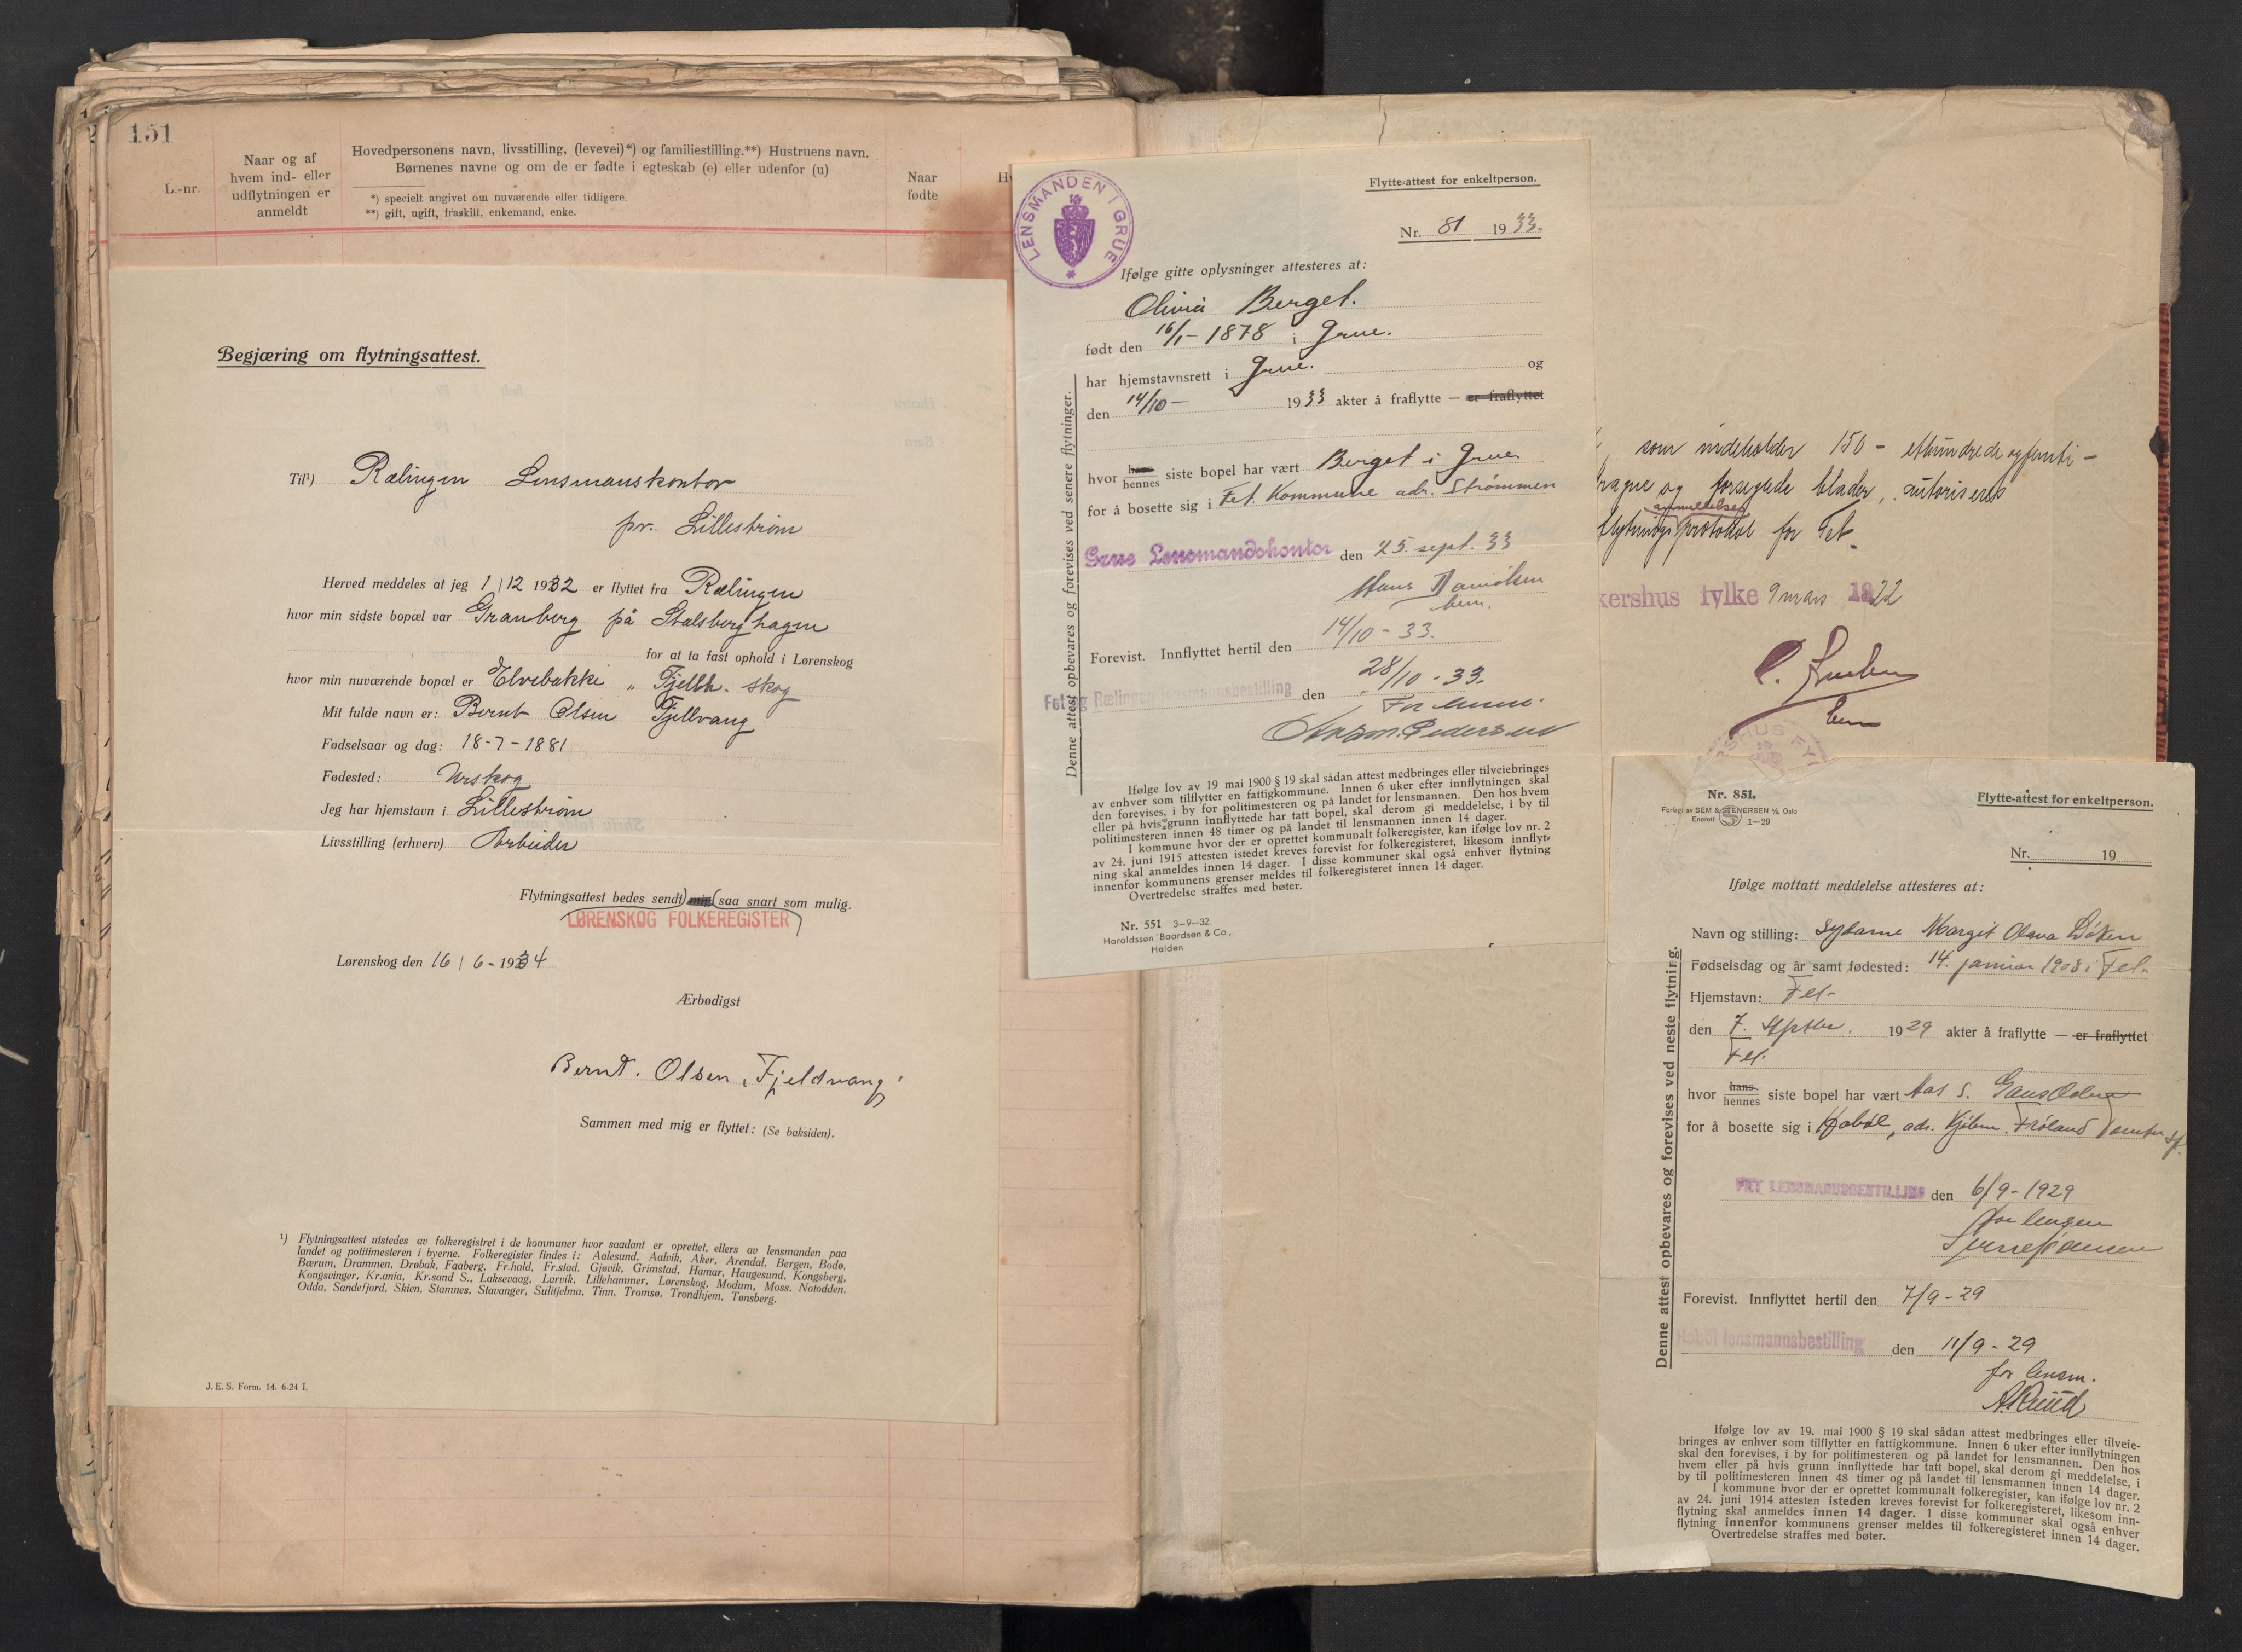 151
L.-nr.
Naar og af
hvem ind- eller
udflytningen er
anmeldt
Hovedpersonens navn, livsstilling, (levevei)*) og familiestilling.**) Hustruens navn.
Børnenes navne og om de er fødte i egteskab (e) eller udenfor (u)
*) specielt angivet om nuværende eller tidligere.
**) gift, ugift, fraskilt, enkemand, enke.
Naar
fødte
Begjæring om flytningsattest.
Til¹) Rælingen Lensmanskontor
pr. Lillestrøm
Herved meddeles at jeg 1/12 1932 er flyttet fra Rælingen
hvor min sidste bopæl var Granberg på Stalsberghagen
for at ta fast ophold i Lørenskog
hvor min nuværende bopæl er Elvebakke " Fjellh. skog
Mit fulde navn er: Bernt Olsen Fjellvang
Fødselsaar og dag: 18-7-1881
Fødested: Urskog
Jeg har hjemstavn i Lillestrøm
Livsstilling (erhverv) Arbeider
Flytningsattest bedes sendt mig saa snart som mulig.
LØRENSKOG FOLKEREGISTER
Lørenskog den 16/6-1934
Ærbødigst
Bernt. Olsen, Fjeldvang,
Sammen med mig er flyttet: (Se baksiden).
¹) Flytningsattest utstedes av folkeregistret i de kommuner hvor saadant er oprettet, ellers av lensmanden paa
landet og politimesteren i byerne. Folkeregister findes i: Aalesund, Aalvik, Aker, Arendal, Bergen, Bodø,
Bærum, Drammen, Drøbak, Faaberg, Fr.hald, Fr.stad, Gjøvik, Grimstad, Hamar, Haugesund, Kongsberg,
Kongsvinger, Kr.ania, Kr.sand S., Laksevaag, Larvik, Lillehammer, Lørenskog, Modum, Moss, Notodden,
Odda, Sandefjord, Skien, Stamnes, Stavanger, Sulitjelma, Tinn, Tromsø, Trondhjem, Tønsberg.
J. E. S. Form. 14. 6-24 I.
LENSMANDEN I GRUE
Flytte-attest for enkeltperson.
Nr. 81 1933.
Ifølge gitte oplysninger attesteres at:
Olivia Berget.
født den 16/1-1878 i Grue.
har hjemstavnsrett i Grue. og
den 14/10- 1933 akter å fraflytte — er fraflyttet
hvor hans hennes siste bopel har vært Berget i Grue
for å bosette sig i Fet Kommune adr. Strømmen
Grue Lensmandskontor den 25. sept. 33
Hans Danielsen
lensm.
Forevist. Innflyttet hertil den 14/10-33.
Fet og Rælingen lensmannsbestilling den 28/10-33.
For lensm.
Pedersen
Denne attest opbevares og forevises ved senere flytninger.
Ifølge lov av 19 mai 1900 § 19 skal sådan attest medbringes eller tilveiebringes
av enhver som tilflytter en fattigkommune. Innen 6 uker efter innflytningen skal
den forevises, i by for politimesteren og på landet for lensmannen. Den hos hvem
eller på hvis grunn innflyttede har tatt bopel, skal derom gi meddelelse, i by til
politimesteren innen 48 timer og på landet til lensmannen innen 14 dager.
I kommune hvor der er oprettet kommunalt folkeregister, kan ifølge lov nr. 2
av 24. juni 1915 attesten istedet kreves forevist for folkeregisteret, likesom innflyt-
ning skal anmeldes innen 14 dager. I disse kommuner skal også enhver flytning
innenfor kommunens grenser meldes til folkeregisteret innen 14 dager.
Overtredelse straffes med bøter.
Nr. 551 3-9-32.
Haraldssen Baardsen & Co,
Halden
som indeholder 150 - ethundrede og femti -
og forseglede blader, autoriseres
anmeldelses
flytnings protokol for Fet
kershus fylke 9 mars 1922
Nr. 851.
Forlagt av SEM & STENERSEN A/S, Oslo
Enerett S 1-29
Flytte-attest for enkeltperson.
Nr. 19
Ifølge mottatt meddelelse attesteres at:
Navn og stilling: Sydame Margit Olava Bøken
Fødselsdag og år samt fødested: 14. januar 1908 i Fet.
Hjemstavn: Fet-
den 7. Septbr. 1929 akter å fraflytte — er fraflyttet
Fet.
hvor hans hennes siste bopel har vært Aas s.
for å bosette sig i Hobøl, adr. Kjøbm. Frøland Tomter st.
FET LENSMANDSBESTILLING den 6/9-1929
for lensm.
Forevist. Innflyttet hertil den 7/9-29
Hobøl lensmannsbestilling den 11/9-29
for lensm.
A. Ruud
Denne attest opbevares og forevises ved neste flytning.
Ifølge lov av 19. mai 1900 § 19 skal sådan attest medbringes eller tilveie-
bringes av enhver som tilflytter en fattigkommune. Innen 6 uker efter innflytningen
skal den forevises, i by for politimesteren og på landet for lensmannen. Den hos
hvem eller på hvis grunn innflyttede har tatt bopel, skal derom gi meddelelse, i
by til politimesteren innen 48 timer og på landet til lensmannen innen 14 dager.
I kommune hvor der er oprettet kommunalt folkeregister, kan ifølge lov nr. 2
av 24. juni 1914 attesten isteden kreves forevist for folkeregisteret, likesom inn-
flytning skal anmeldes innen 14 dager. I disse kommuner skal også enhver
flytning innenfor kommunens grenser meldes til folkeregisteret innen 14 dager.
Overtredelse straffes med bøter.